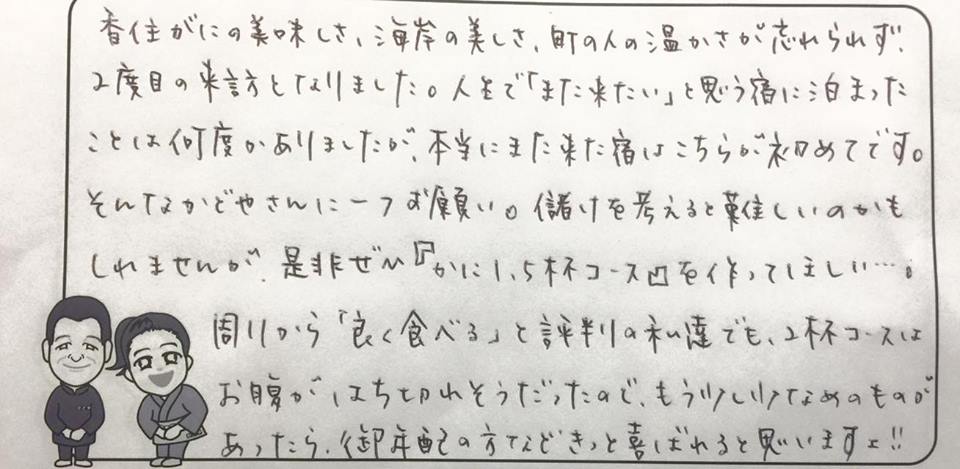 香住がにの美味しさ、海岸の美しさ、町の人の温かさが忘れられず、
2度目の来訪となりました。人生で「また来たい」と思う宿に泊まった
ことは何度かありましたが、本当にまた来た宿はこちらが初めてです。
そんなかどやさんに一つお願い。儲けを考えると難しいのかも
しれませんが、是非ぜひ『かに1.5杯コース』を作ってほしい…。
周りから「良く食べる」と評判の私達でも、2杯コースは
お腹がはち切れそうだったので、もう少し少なめのものが
あったら、御年配の方などきっと喜ばれると思いますヨ!!